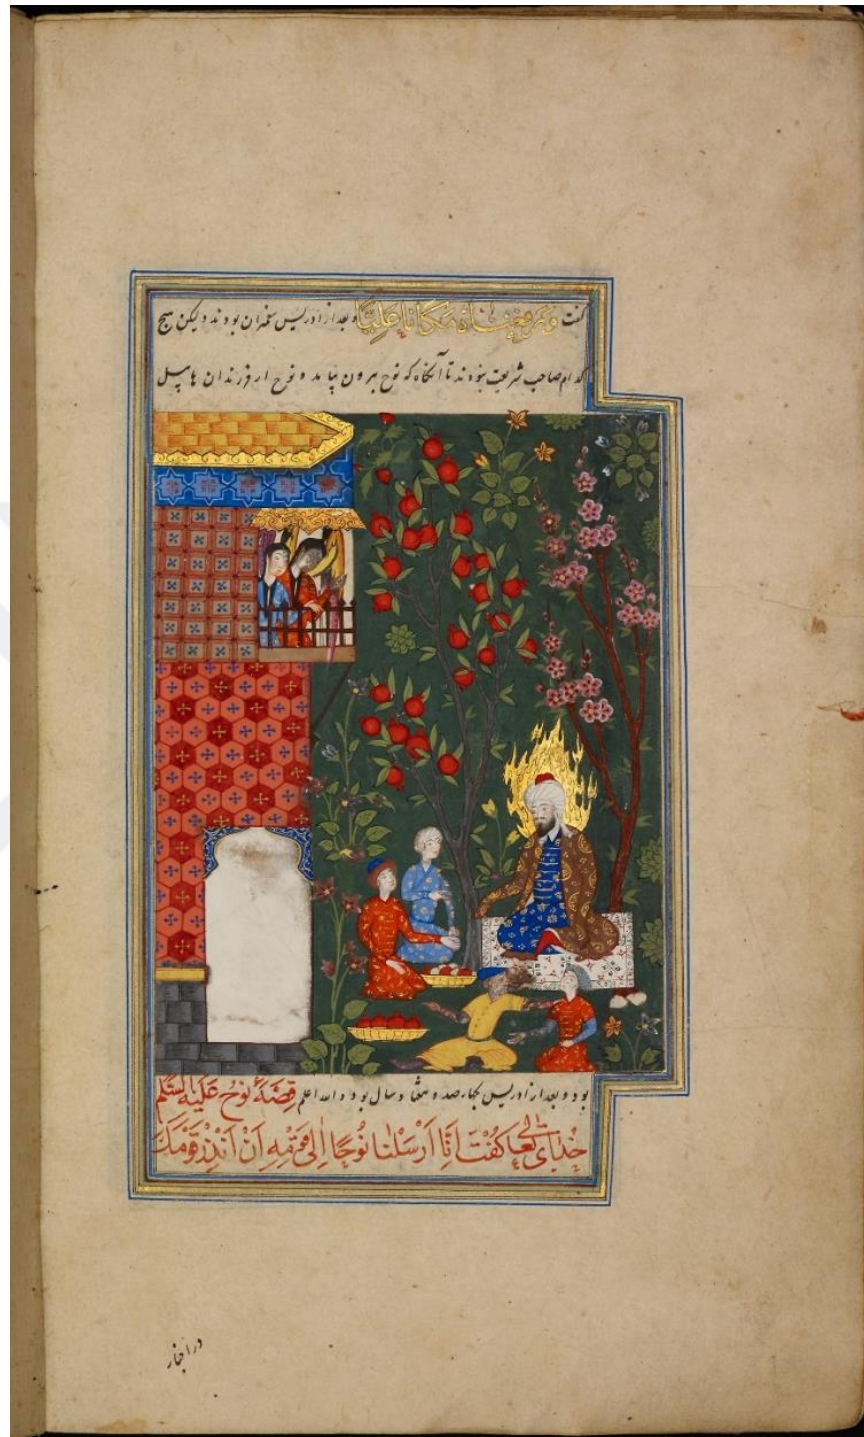 گفت وَرَفَعْنَاهُ مَكَانًا عَلِيًّا و بعد از ادریس پیغمبران بودند و لیکن هیچ
کدام صاحب شریعت نبودند تا آنکاه که نوح بیرون بیامد و نوح از فرزندان هابیل
بود و بعد از ادریس بچهارصد و هفتاد سال بود و الله اعلم قِصّهٔ نوُح عَلَیْهِ السَّلَام
خدای تعالی کفت اِنَّا اَرْسَلْنَا نُوحًا اِلیٰ قَوْمِهِ اَنْ اَنْذِرْ قَوْمَكَ